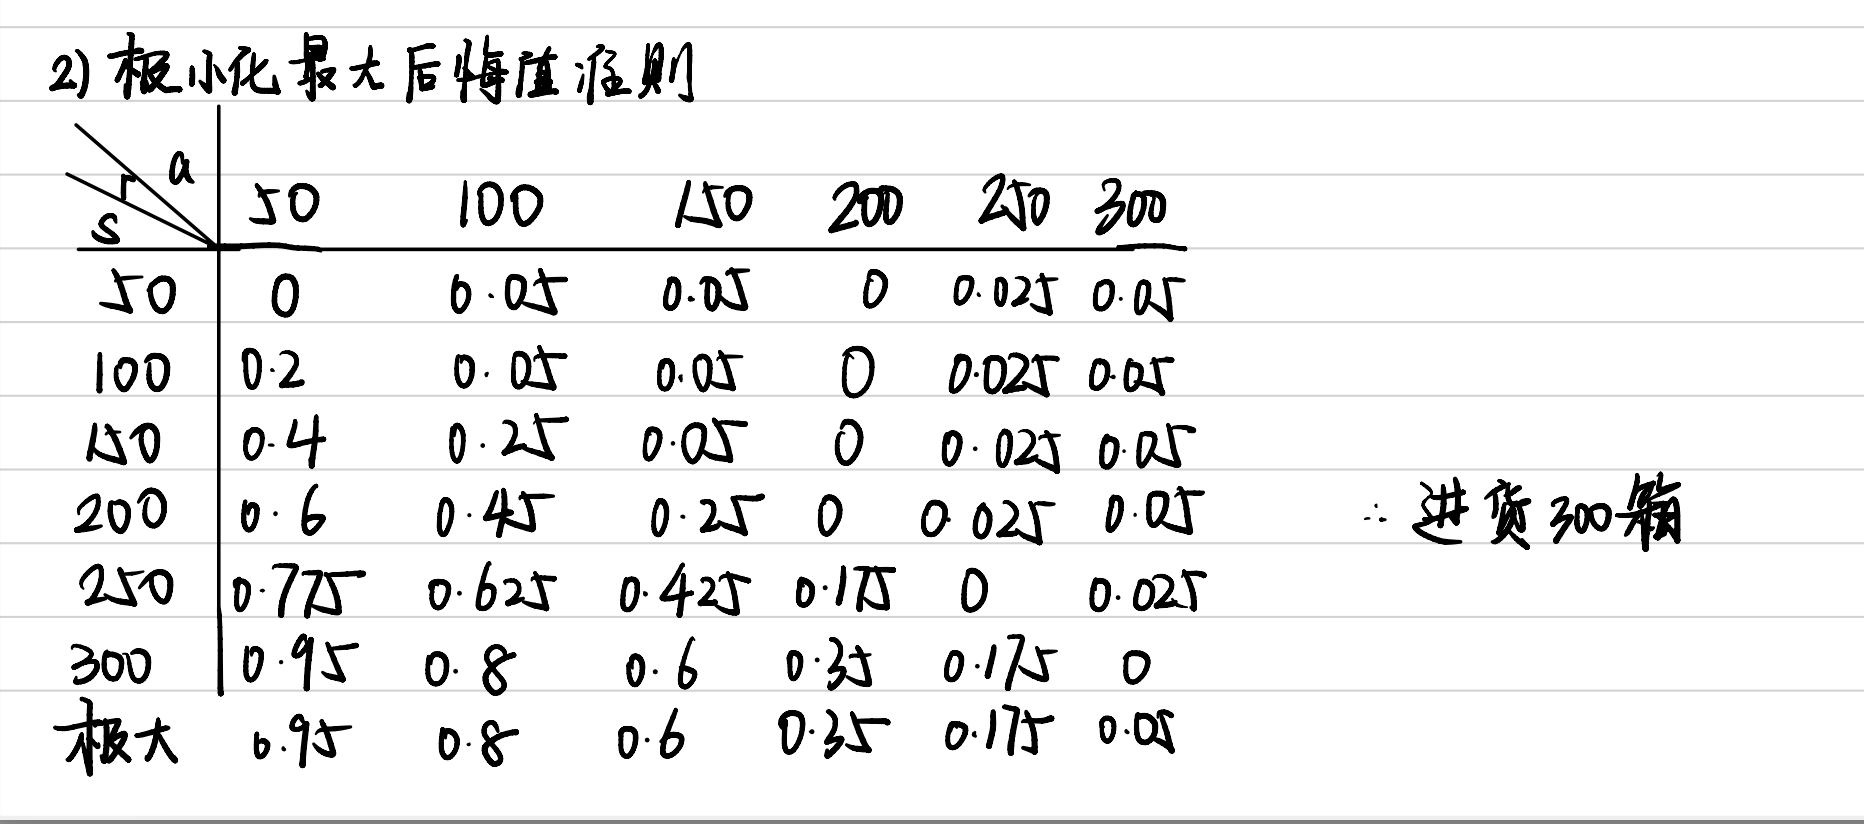 2) 极小化最大后悔值准则
a
r
s
50 100 150 200 250 300
50 0 0.05 0.05 0 0.025 0.05
100 0.2 0.05 0.05 0 0.025 0.05
150 0.4 0.25 0.05 0 0.025 0.05
200 0.6 0.45 0.25 0 0.025 0.05 ∴ 进货300箱
250 0.775 0.625 0.425 0.175 0 0.025
300 0.95 0.8 0.6 0.35 0.175 0
极大 0.95 0.8 0.6 0.35 0.175 0.05